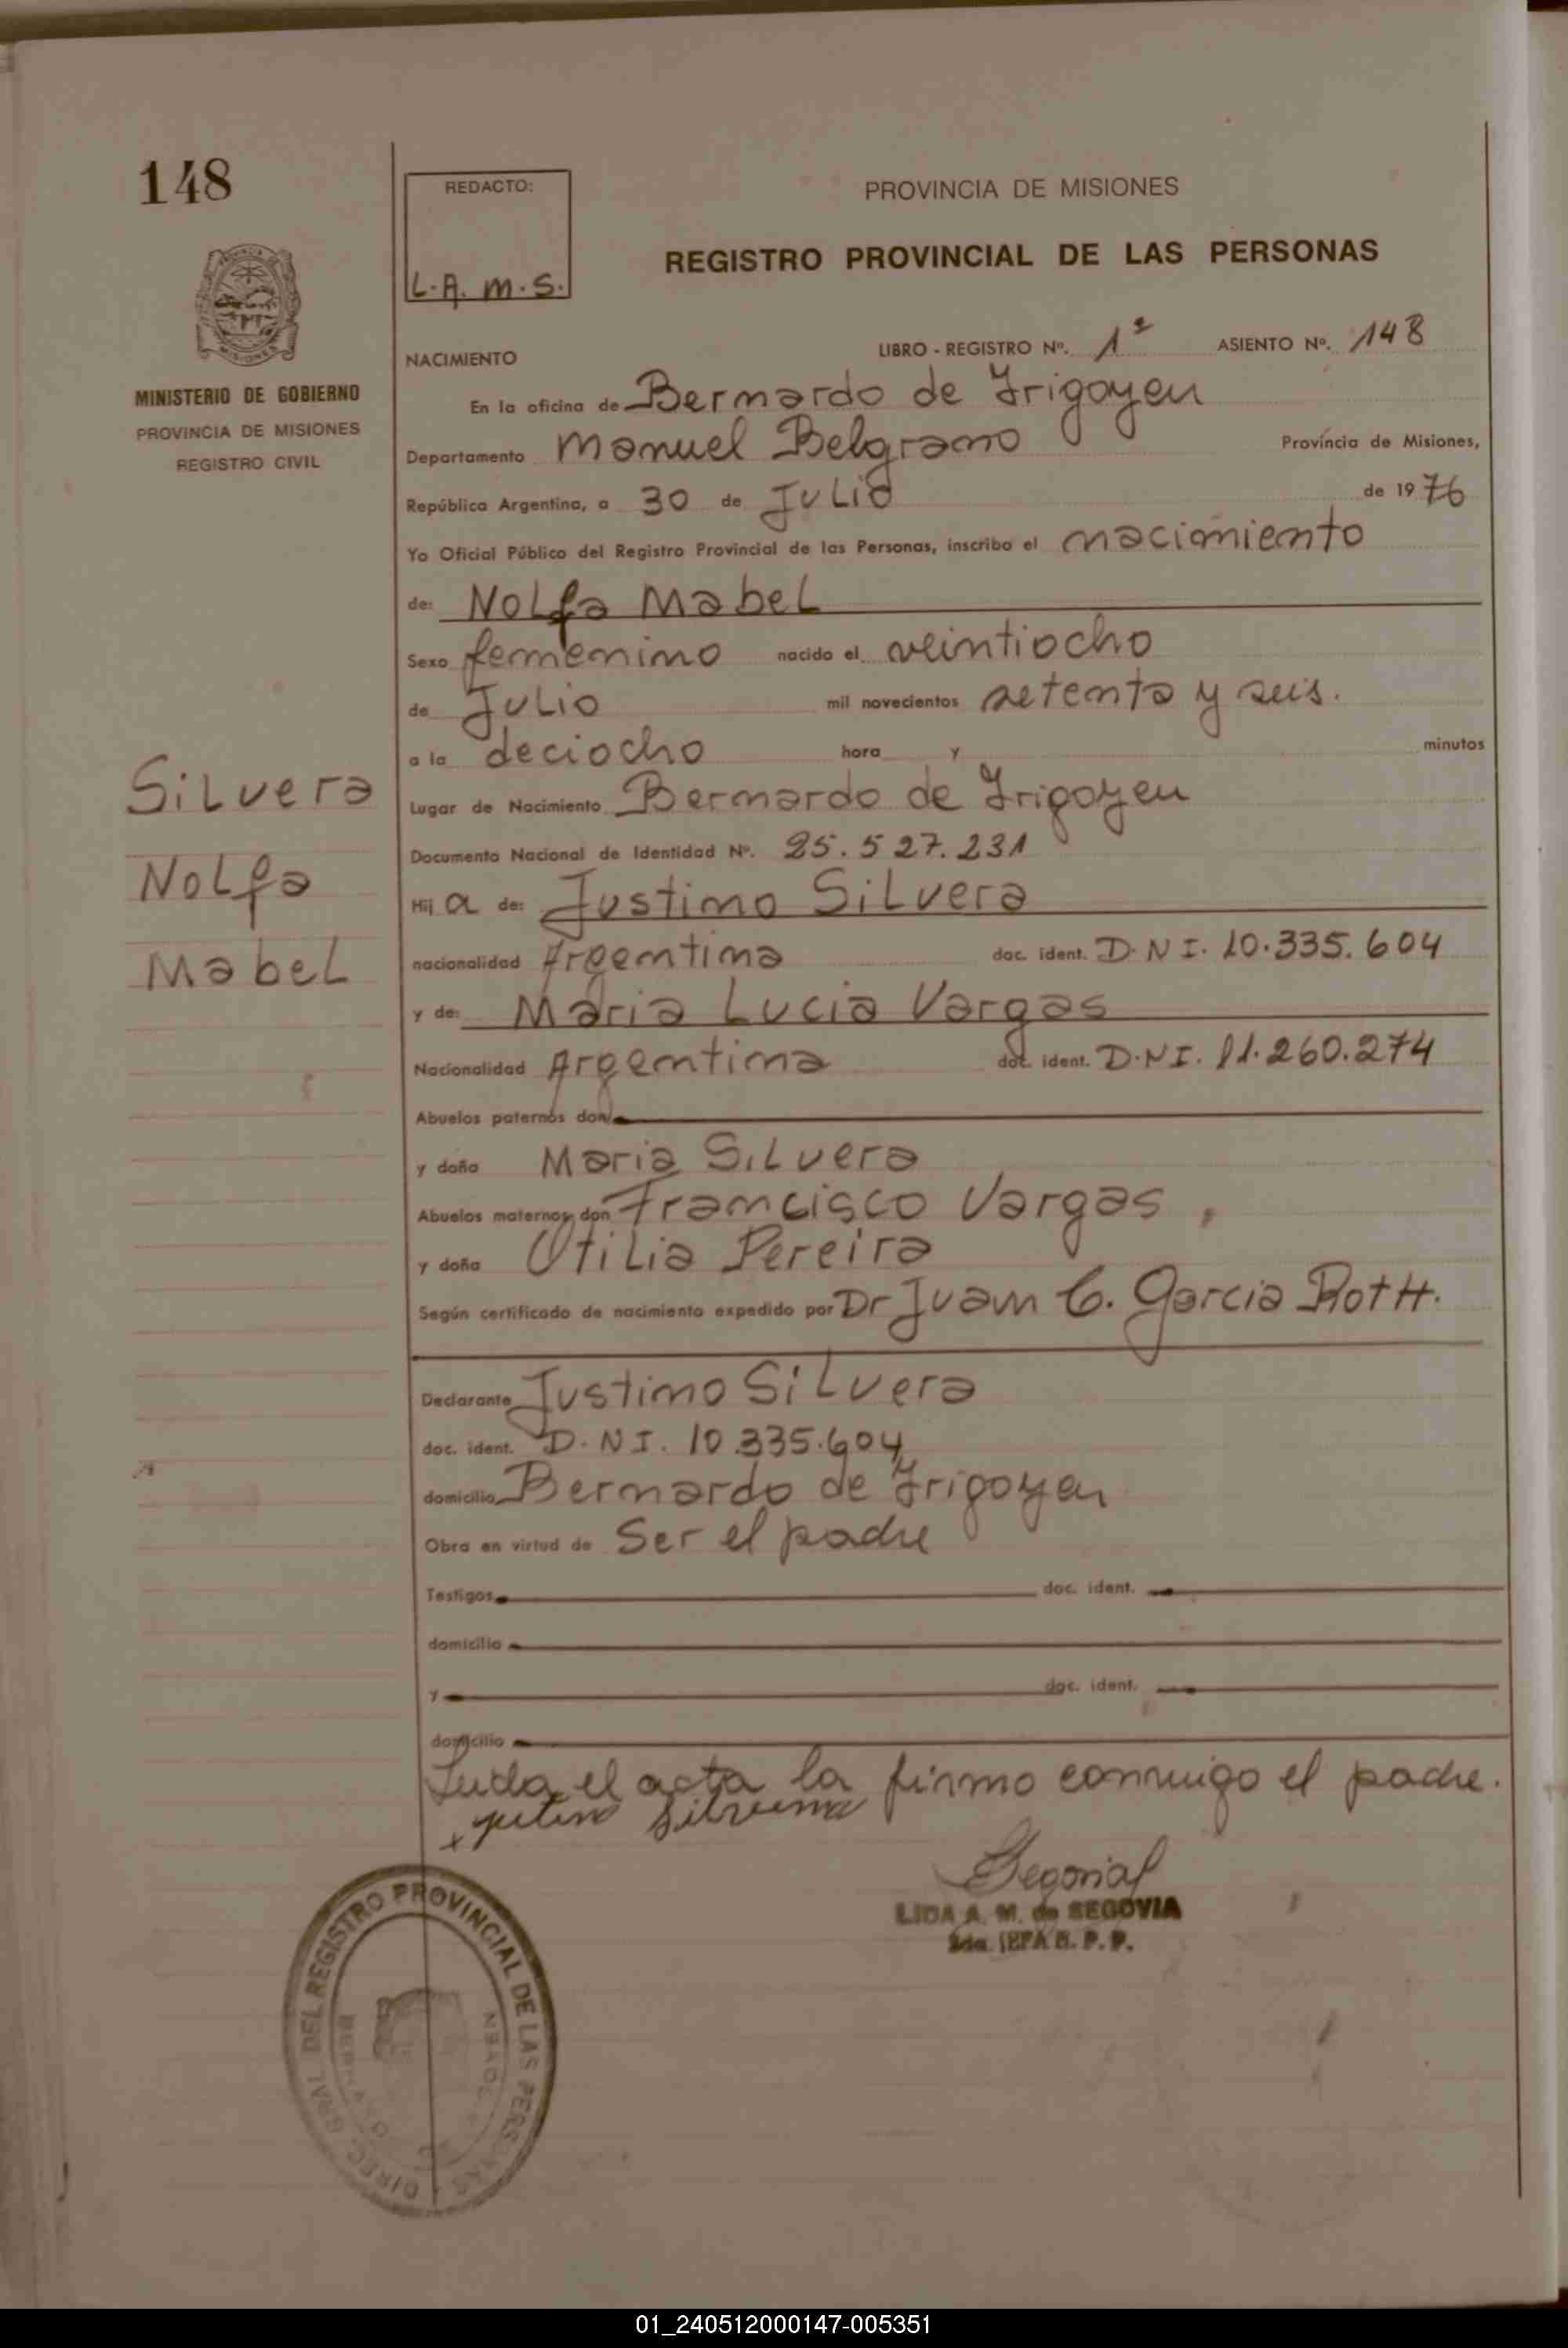 148
REDACTO:
L.A. M.S.
PROVINCIA DE MISIONES
REGISTRO PROVINCIAL DE LAS PERSONAS
MISIONES
MINISTERIO DE GOBIERNO
PROVINCIA DE MISIONES
REGISTRO CIVIL
NACIMIENTO LIBRO - REGISTRO Nº. 1º ASIENTO Nº. 148
En la oficina de Bernardo de Irigoyen
Departamento Manuel Belgrano Provincia de Misiones,
República Argentina, a 30 de Julio de 1976
Yo Oficial Público del Registro Provincial de las Personas, inscribo el nacimiento
de: Nolfa Mabel
Sexo femenino nacido el veintiocho
de Julio mil novecientos setenta y seis.
a la deciocho hora y minutos
Lugar de Nacimiento Bernardo de Irigoyen
Documento Nacional de Identidad Nº. 25.527.231
Hij a de: Justino Silvera
nacionalidad Argentina doc. ident. D.N I. 10.335.604
y de: Maria Lucia Vargas
Nacionalidad Argentina doc. ident. D.N I. 11.260.274
Abuelos paternos don
y doña Maria Silvera
Abuelos maternos don Francisco Vargas,
y doña Otilia Pereira
Según certificado de nacimiento expedido por Dr Juan C. Garcia Roth.
Silvera
Nolfa
Mabel
Declarante Justino Silvera
doc. ident. D.N I. 10.335.604
domicilio Bernardo de Irigoyen
Obra en virtud de Ser el padre
Testigos doc. ident.
domicilio
y doc. ident.
domicilio
Leida el acta la firma conmigo el padre.
LIDA A. M. de SEGOVIA
2da. JEFA R. P. P.
DIREC. GRAL. DEL REGISTRO PROVINCIAL DE LAS PERSONAS
01_240512000147-005351